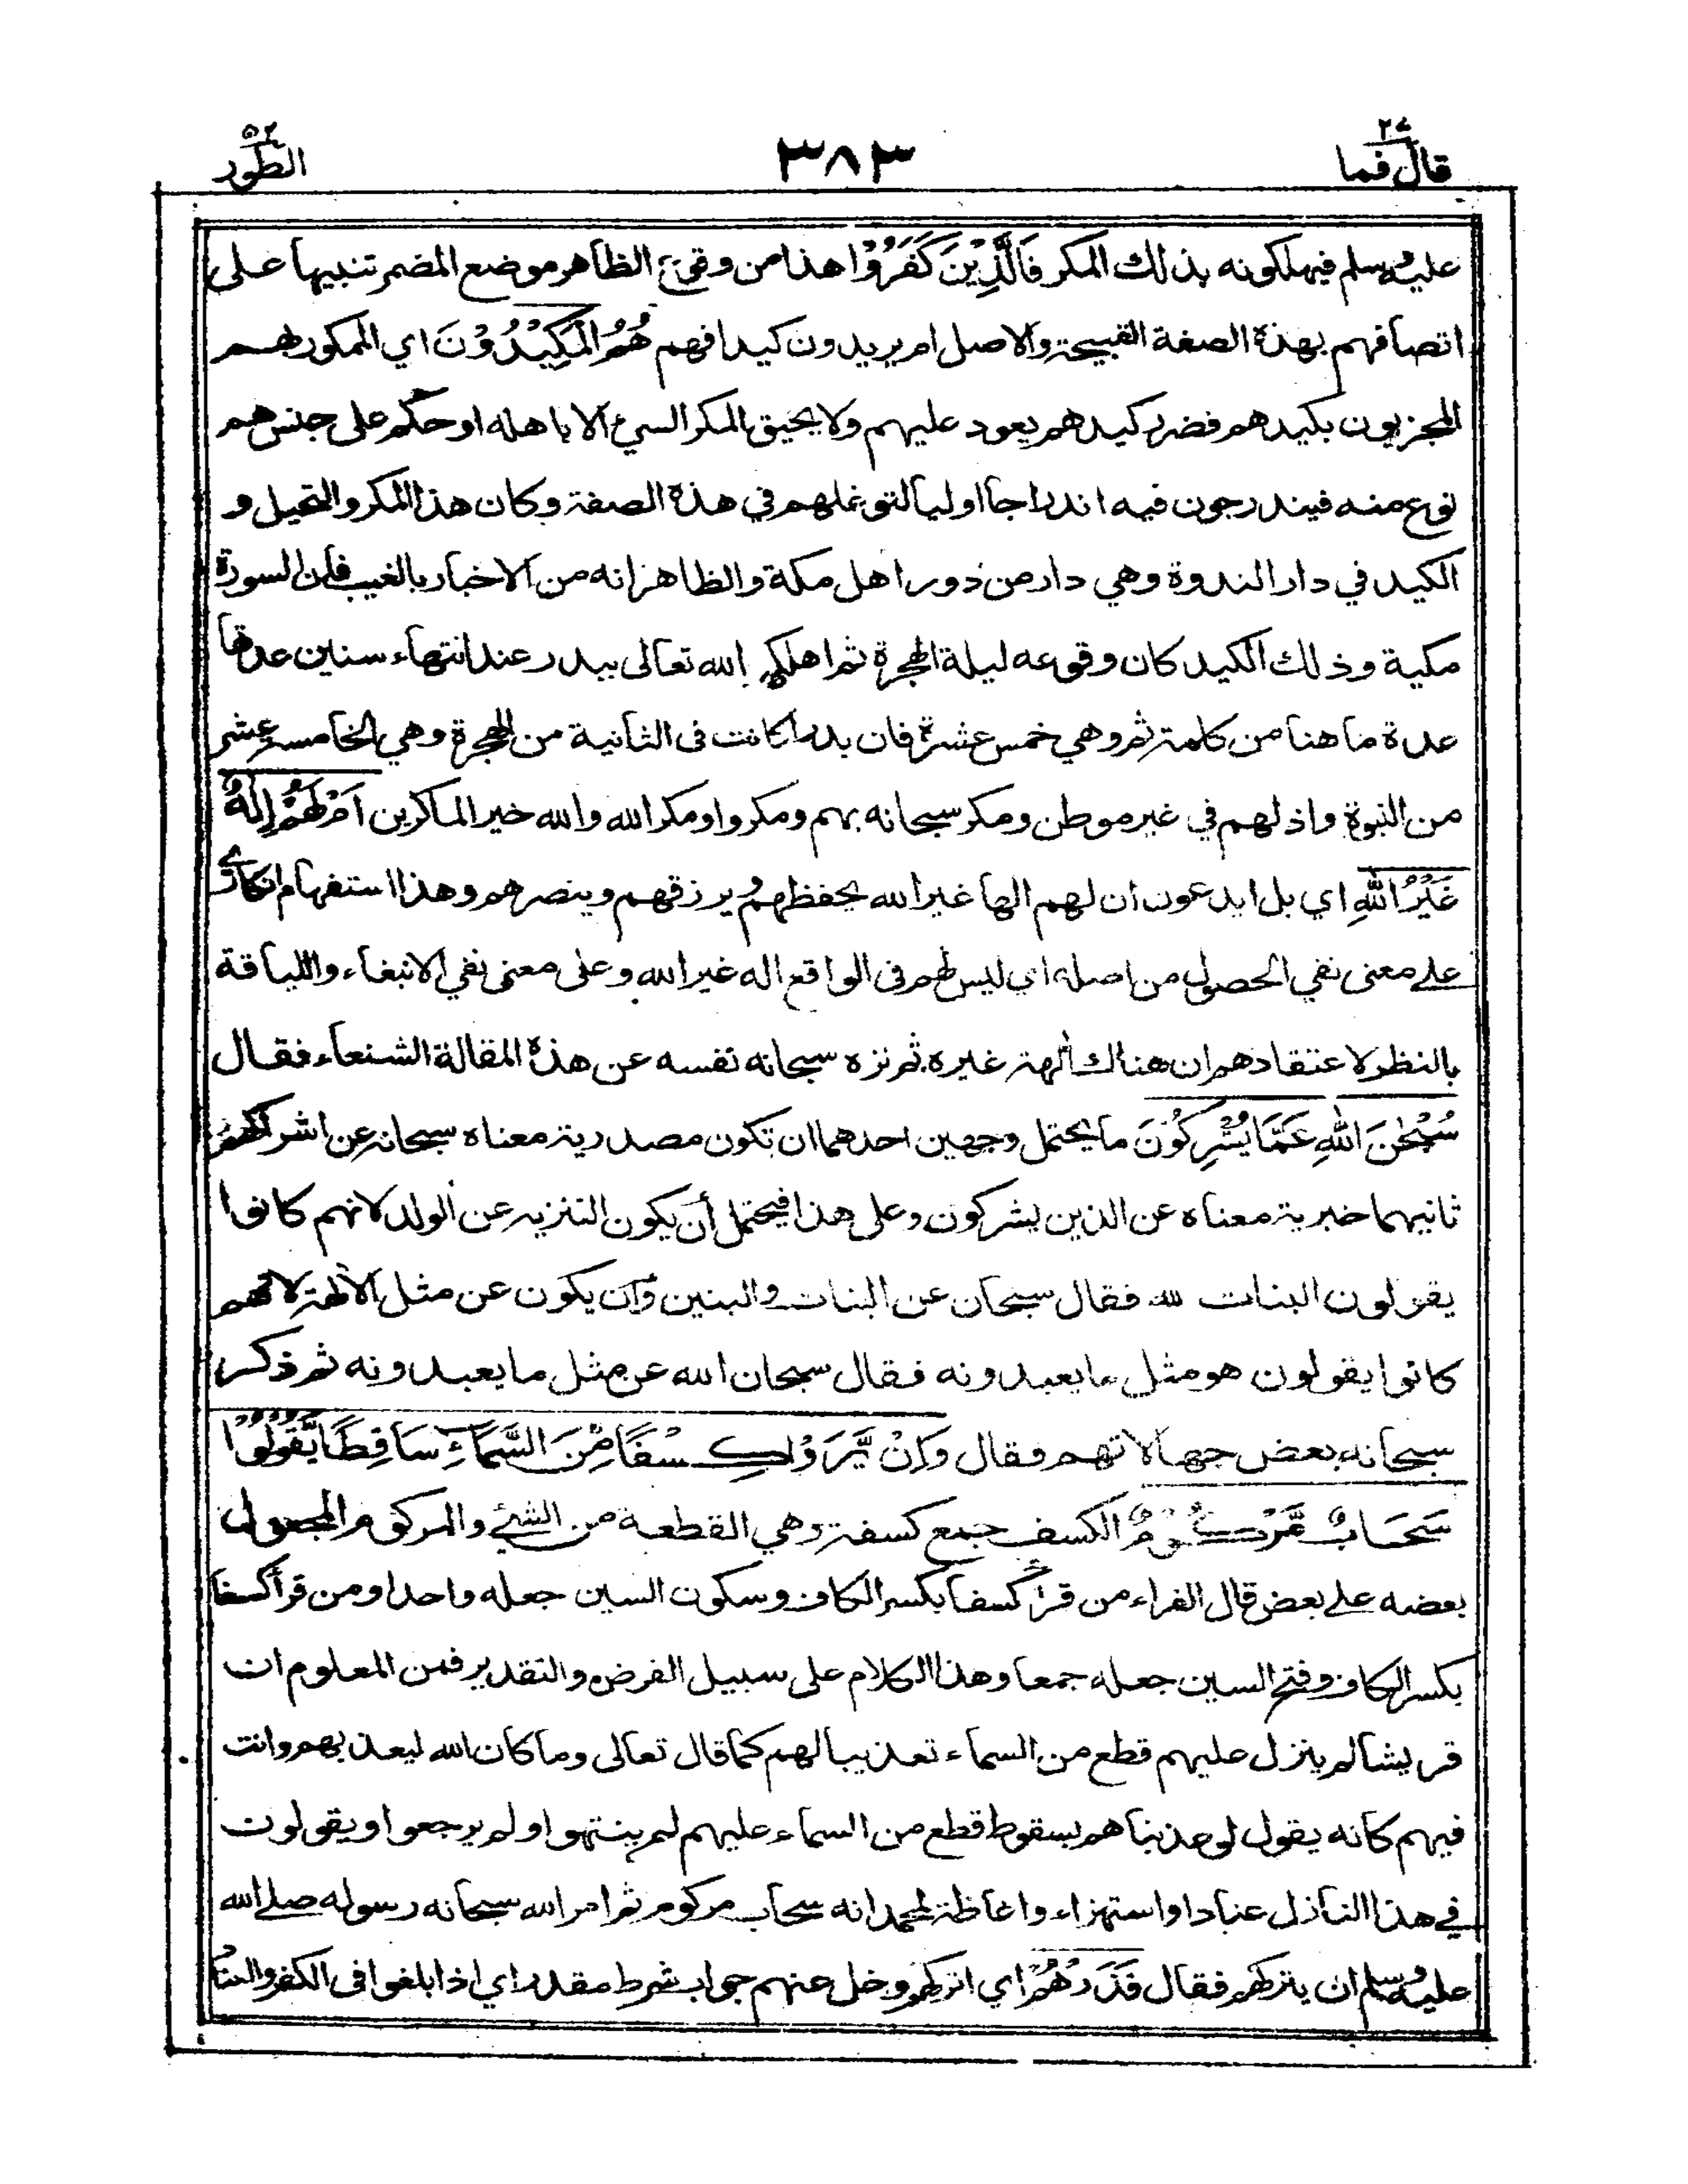 قال فما ٢٧
٣٨٣
الطور ٥٢
عليه وسلم فيهلكونه بذلك المكر فَالَّذِيْنَ كَفَرُوْا هذا من وقوع الظاهر موضع المضمر تنبيها على
اتصافهم بهذه الصفة القبيحة والاصل ام يريدون كيدا فهم هُمُ الْمَكِيْدُوْنَ اي الممكور بهم
المجزيون بكيدهم فضرر كيدهم يعود عليهم ولا يحيق المكر السيء الا باهله او حكم على جنس هم
نوع منه فيندرجون فيه اندراجا اوليا لتوغلهم في هذه الصفة وكان هذا المكر والتحيل و
الكيد في دار الندوة وهي دار من دور اهل مكة والظاهر انه من الاخبار بالغيب فان السورة
مكية وذلك الكيد كان وقوعه ليلة الهجرة ثم اهلكهم الله تعالى ببدر عند انتهاء سنين عدتها
عدة ما هنا من كلمة ثم وهي خمس عشرة فان بدرا كانت فى الثانية من الهجرة وهي الخامسة عشر
من النبوة واذلهم في غير موطن ومكر سبحانه بهم ومكروا ومكر الله والله خير الماكرين اَمْ لَهُمْ اِلٰهٌ
غَيْرُ اللّٰهِ اي بل ايدعون أن لهم الها غير الله يحفظهم ويرزقهم وينصرهم وهذا استفهام انكاري
على معنى نفي الحصول من اصله اي ليس لهم فى الواقع اله غير الله وعلى معنى نفي الانبغاء واللياقة
بالنظر لاعتقادهم ان هناك ألهة غيره ثم نزه سبحانه نفسه عن هذه المقالة الشنعاء فقال
سُبْحٰنَ اللّٰهِ عَمَّا يُشْرِكُوْنَ ما يحتمل وجهين احدهما ان تكون مصدرية معناه سبحانه عن اشراكهم
ثانيهما خبرية معناه عن الذين يشركون وعلى هذا فيحتمل أن يكون التنزيه عن الولد لانهم كانوا
يقولون البنات لله فقال سبحان عن البنات والبنين وأن يكون عن مثل الألهة لانهم
كانوا يقولون هو مثل ما يعبدونه فقال سبحان الله عن مثل ما يعبدونه ثم ذكر
سبحانه بعض جهالاتهم فقال وَاِنْ يَّرَوْا كِسْفًا مِّنَ السَّمَآءِ سَاقِطًا يَّقُوْلُوْا
سَحَابٌ مَّرْكُوْمٌ الكسف جمع كسفة وهي القطعة من الشيء والمركوم المجعول
بعضه على بعض قال الفراء من قرأ كسفا بكسر الكاف وسكون السين جعله واحدا ومن قرأ كسفا
بكسر الكاف وفتح السين جعله جمعا وهذا الكلام على سبيل الفرض والتقدير فمن المعلوم ان
قريشا لم ينزل عليهم قطع من السماء تعذيبا لهم كما قال تعالى وما كان الله ليعذبهم وانت
فيهم كانه يقول لو عذبناهم بسقوط قطع من السماء عليهم لم ينتهوا ولم يرجعوا ويقولون
في هذا النازل عنادا واستهزاء واغاظة لمحمد انه سحاب مركوم ثم امر الله سبحانه رسوله صلى الله
عليه وسلم ان يتركهم فقال فَذَرْهُمْ اي اتركهم وخل عنهم جواب شرط مقدر اي اذا بلغوا فى الكفر والعناد